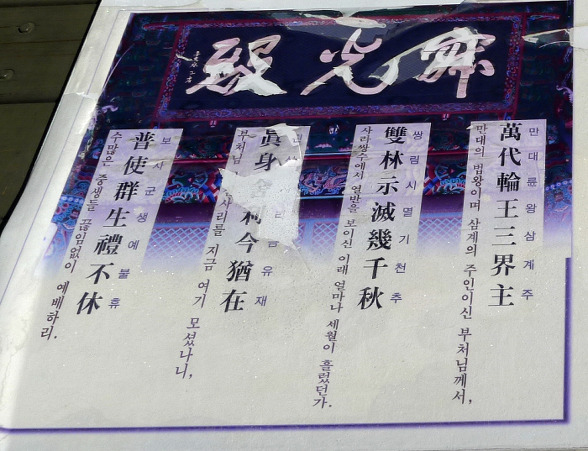 寂光殿
만대륜왕삼계주
萬代輪王三界主
만대의 법왕이며 삼계의 주인이신 부처님께서,
쌍림시멸기천추
雙林示滅幾千秋
사라쌍수에서 열반을 보이신 이래 얼마나 세월이 흘렀던가.
유재
眞身舍利今猶在
부처님 사리를 지금 여기 모셨나니,
보사군생예불휴
普使群生禮不休
수많은 중생들 끊임없이 예배하리.